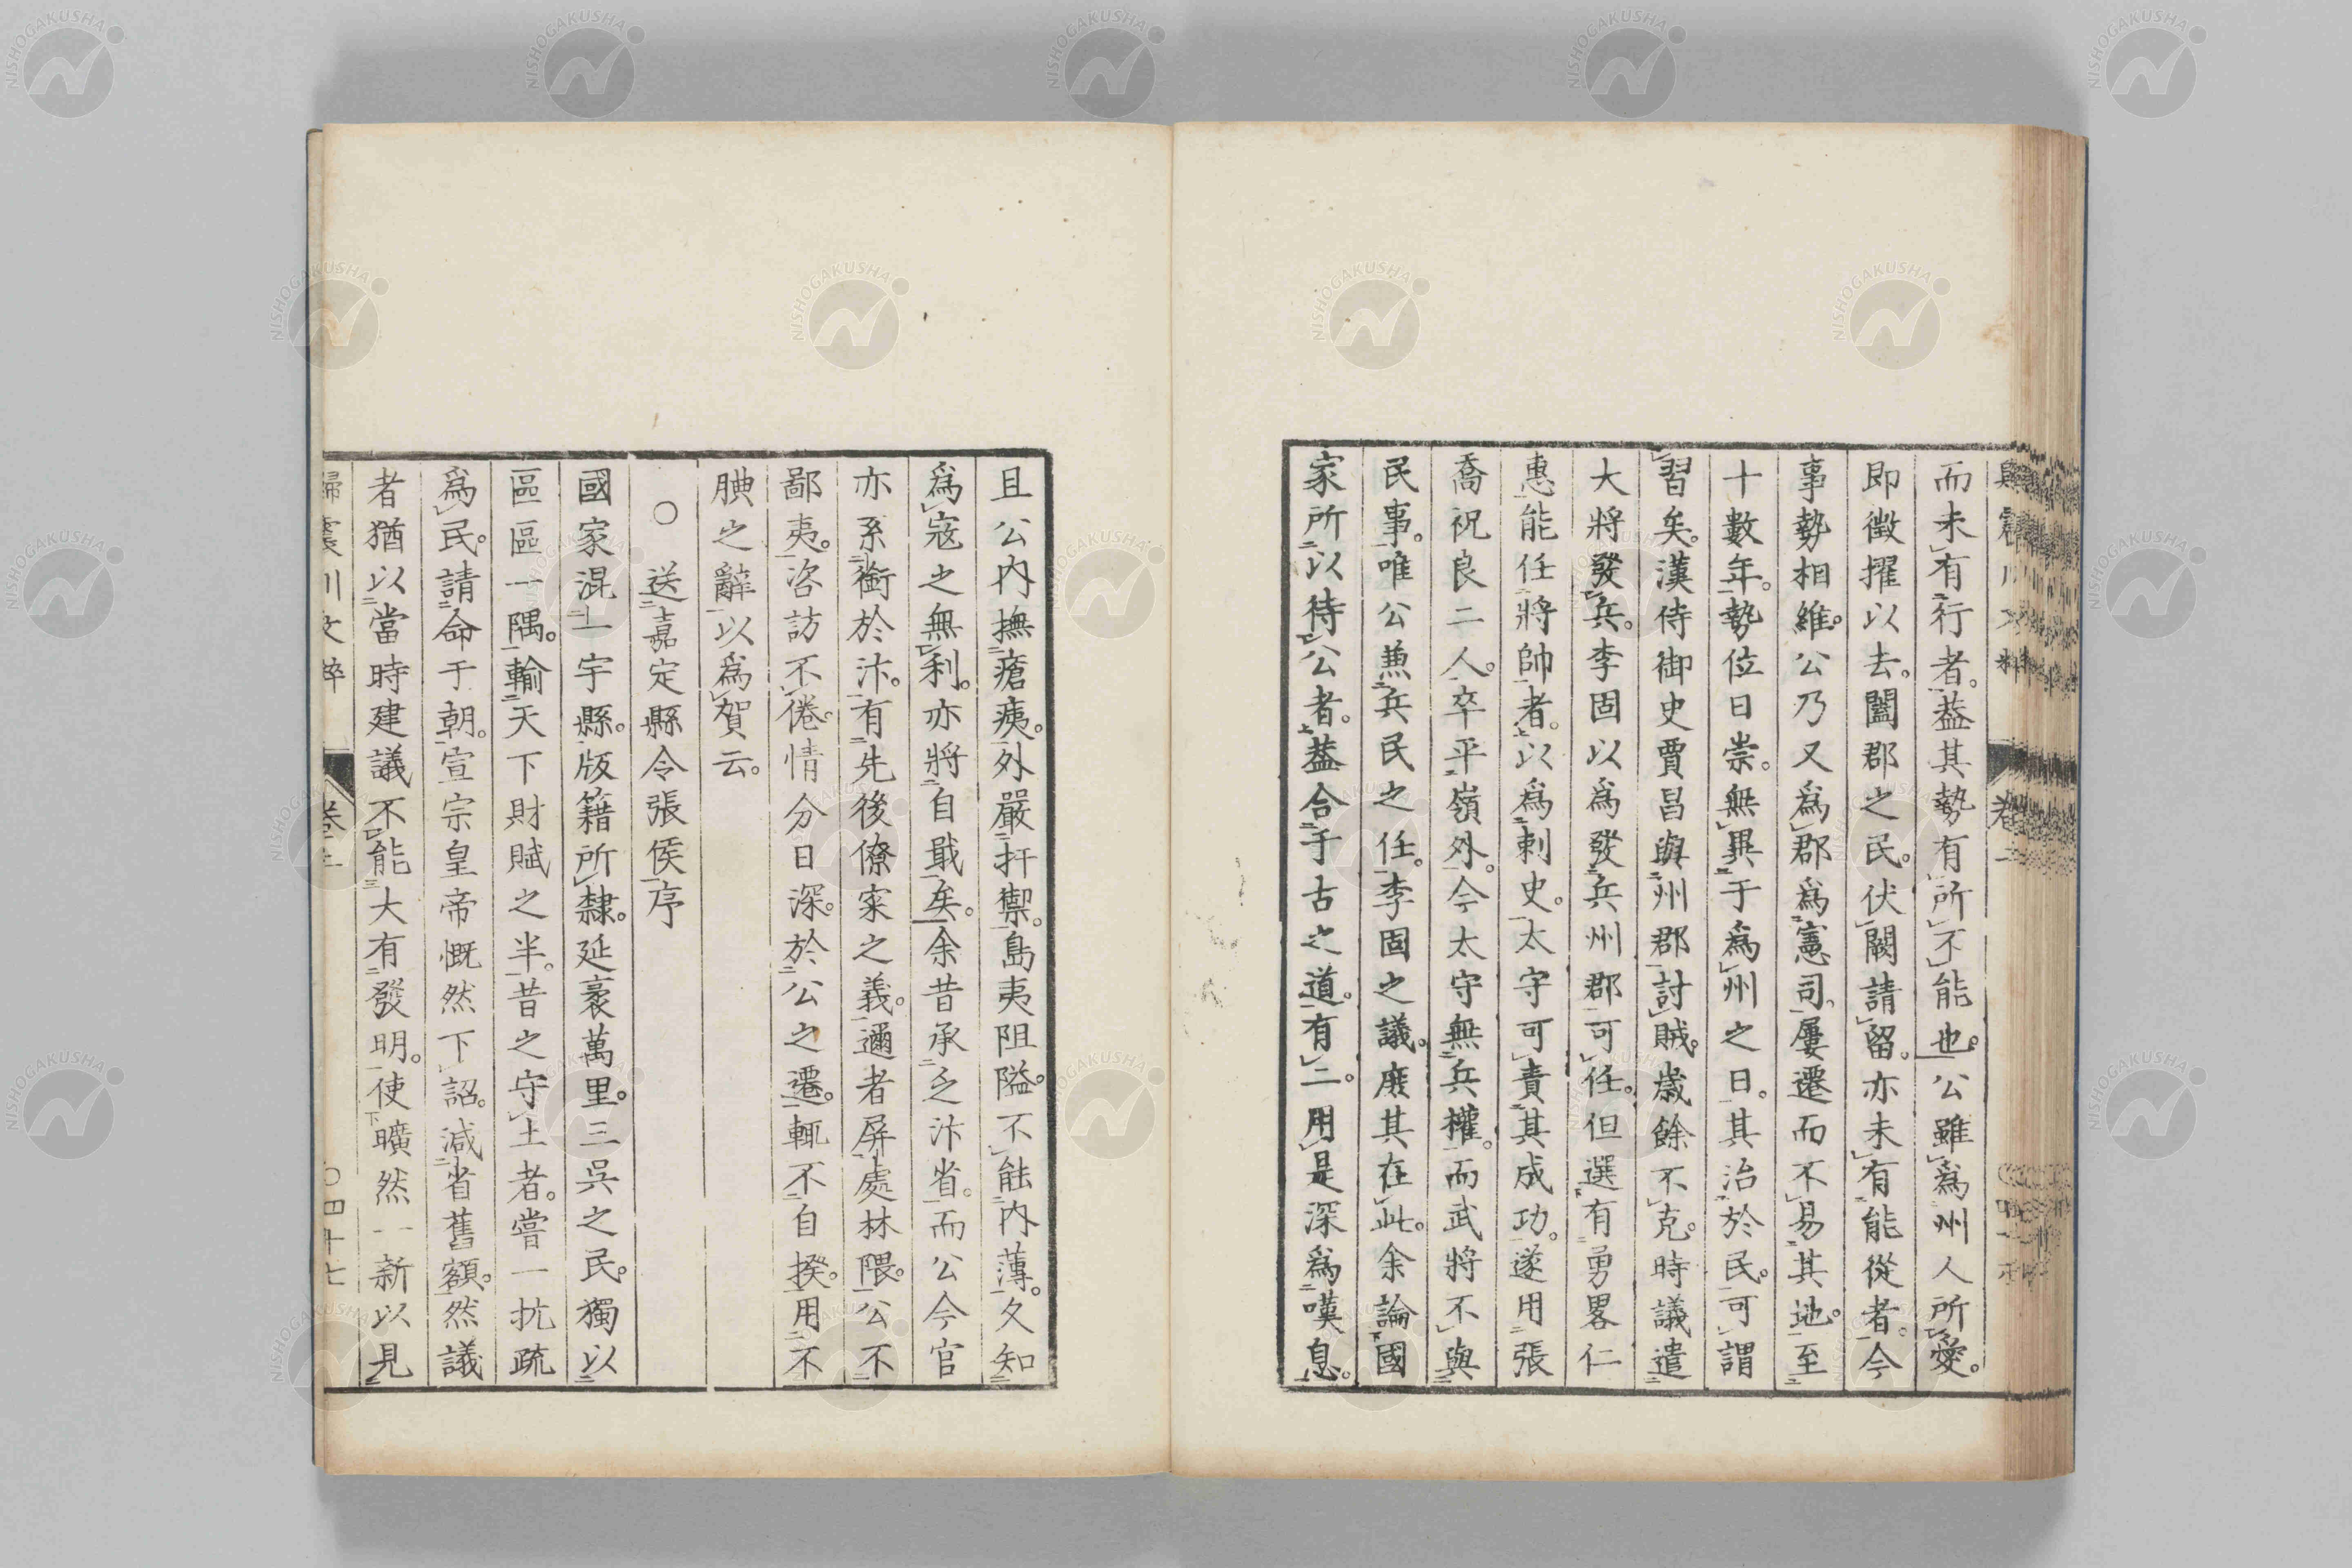 而未有行者。蓋其勢有所不能也。公雖爲州人所愛。
即徵擢以去。闔郡之民。伏闕請留。亦未有能從者。今
事勢相維。公乃又爲郡爲憲司。屢遷而不易其地。至
十數年。勢位日崇。無異于爲州之日。其治於民。可謂
習矣。漢侍御史賈昌與州郡討賊。歲餘不克。時議遣
大將發兵。李固以爲發兵州郡可任。但選有勇畧仁
惠能任將帥者。以爲刺史。太守可責其成功。遂用張
喬祝良二人。卒平嶺外。今太守無兵權。而武將不與
民事。唯公兼兵民之任。李固之議。庻其在此。余論國
家所以待公者。蓋合于古之道。有二。用是深爲嘆息。
且公內撫瘡痍。外嚴扞禦。島夷阻隘。不能內薄。久知
爲寇之無利。亦將自戢矣。余昔承乏汴省。而公今官
亦系銜於汴。有先後僚寀之義。邇者屏處林隈。公不
鄙夷。咨訪不倦。情分日深。於公之遷。輒不自揆。用不
腆之辭以爲賀云。
○送嘉定縣令張侯序
國家混一宇縣。版籍所隸。延袤萬里。三吳之民。獨以
區區一隅。輸天下財賦之半。昔之守土者。嘗一抗疏
爲民。請命于朝。宣宗皇帝慨然下詔。減省舊額。然議
者猶以當時建議不能大有發明。使曠然一新以見
歸震川文粹 卷二 ○四十七